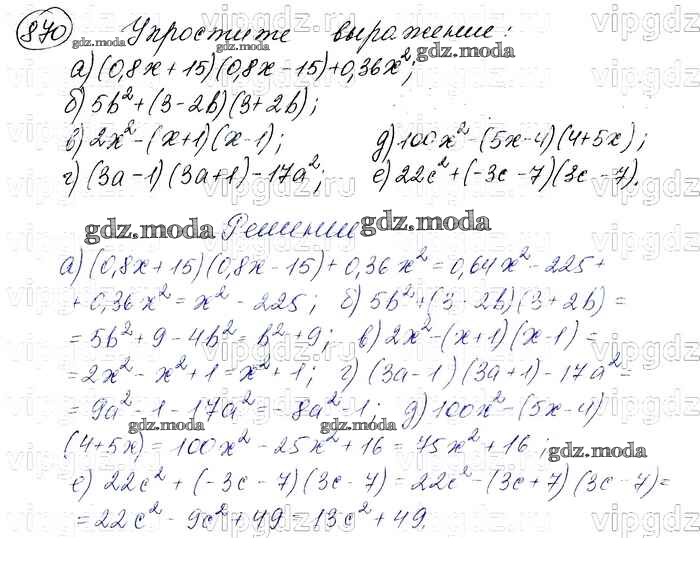 870 Упростите выражение:
а) (0,8x + 15)(0,8x - 15) + 0,36x²;
б) 5b² + (3 - 2b)(3 + 2b);
в) 2x² - (x + 1)(x - 1); д) 100x² - (5x - 4)(4 + 5x);
г) (3a - 1)(3a + 1) - 17a²; е) 22c² + (-3c - 7)(3c - 7).
gdz.moda Решение gdz.moda
а) (0,8x + 15)(0,8x - 15) + 0,36x² = 0,64x² - 225 +
+ 0,36x² = x² - 225; б) 5b² + (3 - 2b)(3 + 2b) =
= 5b² + 9 - 4b² = b² + 9; в) 2x² - (x + 1)(x - 1) =
= 2x² - x² + 1 = x² + 1; г) (3a - 1)(3a + 1) - 17a² =
= 9a² - 1 - 17a² = -8a² - 1; д) 100x² - (5x - 4)
(4 + 5x) = 100x² - 25x² + 16 = 75x² + 16;
е) 22c² + (-3c - 7)(3c - 7) = 22c² - (3c + 7)(3c - 7) =
= 22c² - 9c² + 49 = 13c² + 49.